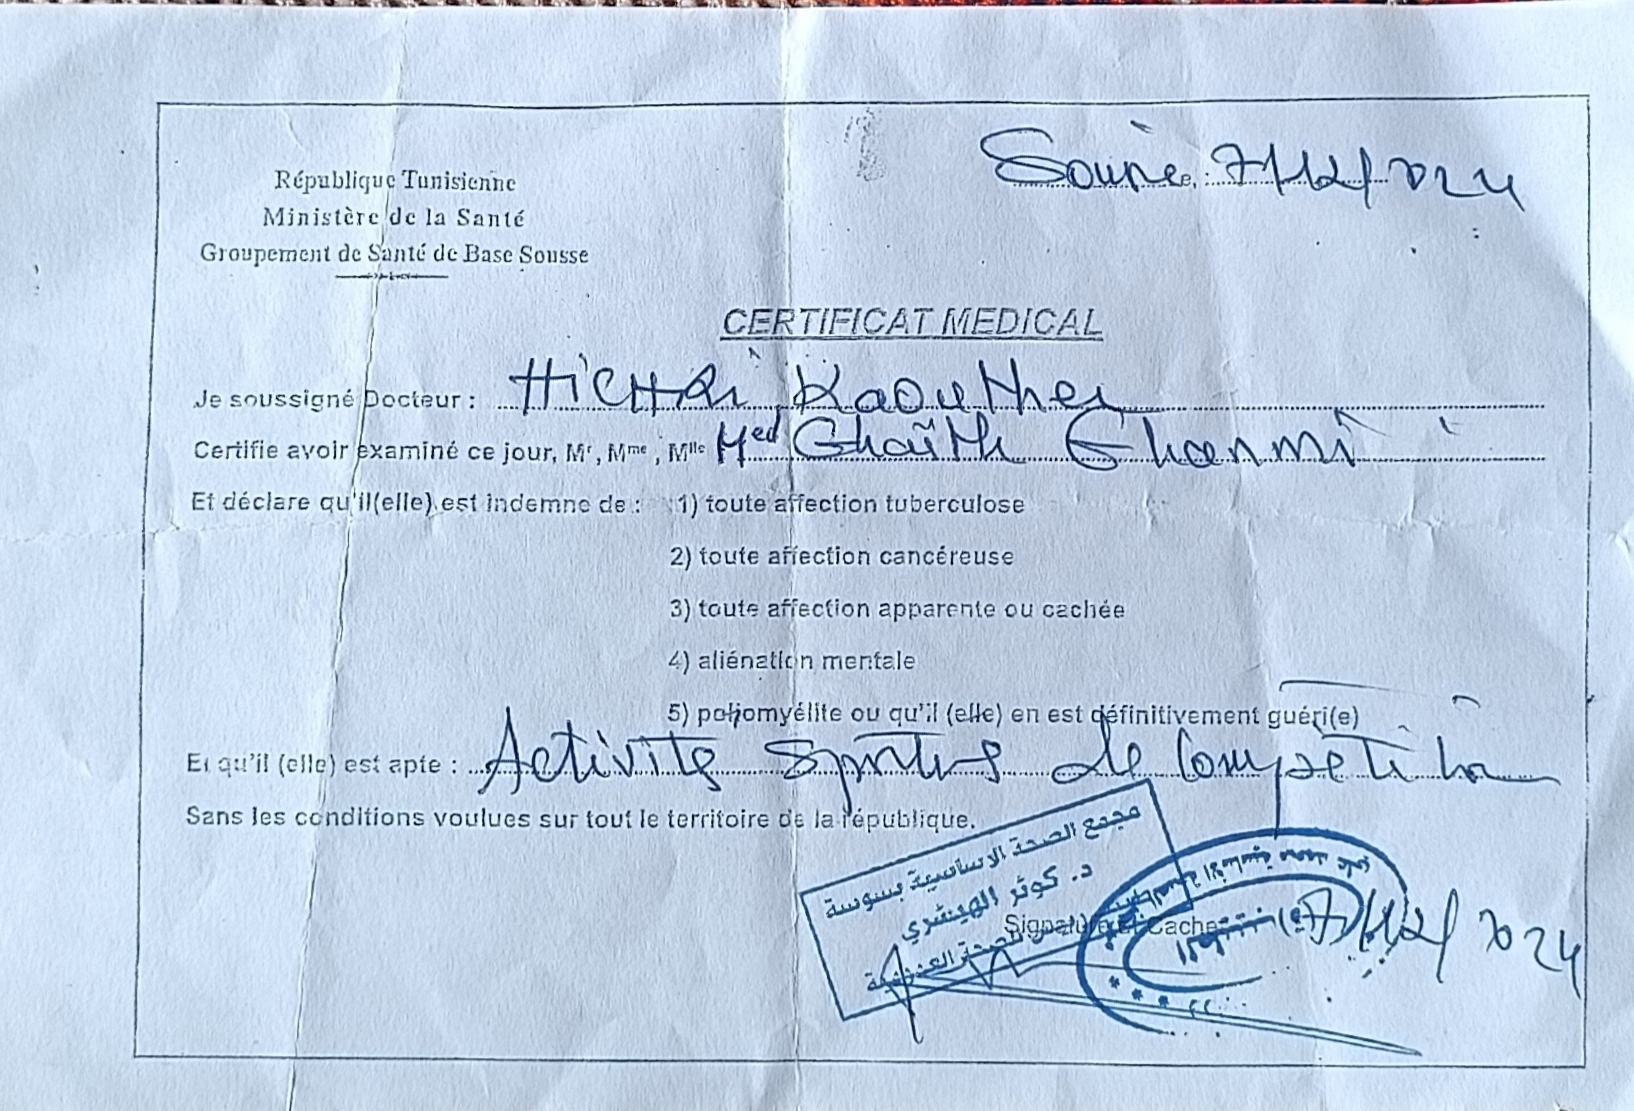 République Tunisienne
Ministère de la Santé
Groupement de Santé de Base Sousse
Sousse, 7/12/2024
CERTIFICAT MEDICAL
Je soussigné Docteur : Hichri Kaouther
Certifie avoir examiné ce jour, Mr, Mme, Mlle Med Ghaïth Ghanmi
Et déclare qu'il(elle) est indemne de : 1) toute affection tuberculose
2) toute affection cancéreuse
3) toute affection apparente ou cachée
4) aliénation mentale
5) poliomyélite ou qu'il (elle) en est définitivement guéri(e)
Et qu'il (elle) est apte : Activité sportive de compétition
Sans les conditions voulues sur tout le territoire de la république.
مجمع الصحة الاساسية بسوسة
د. كوثر الهيشري
Signature et Cachet
7/12/2024